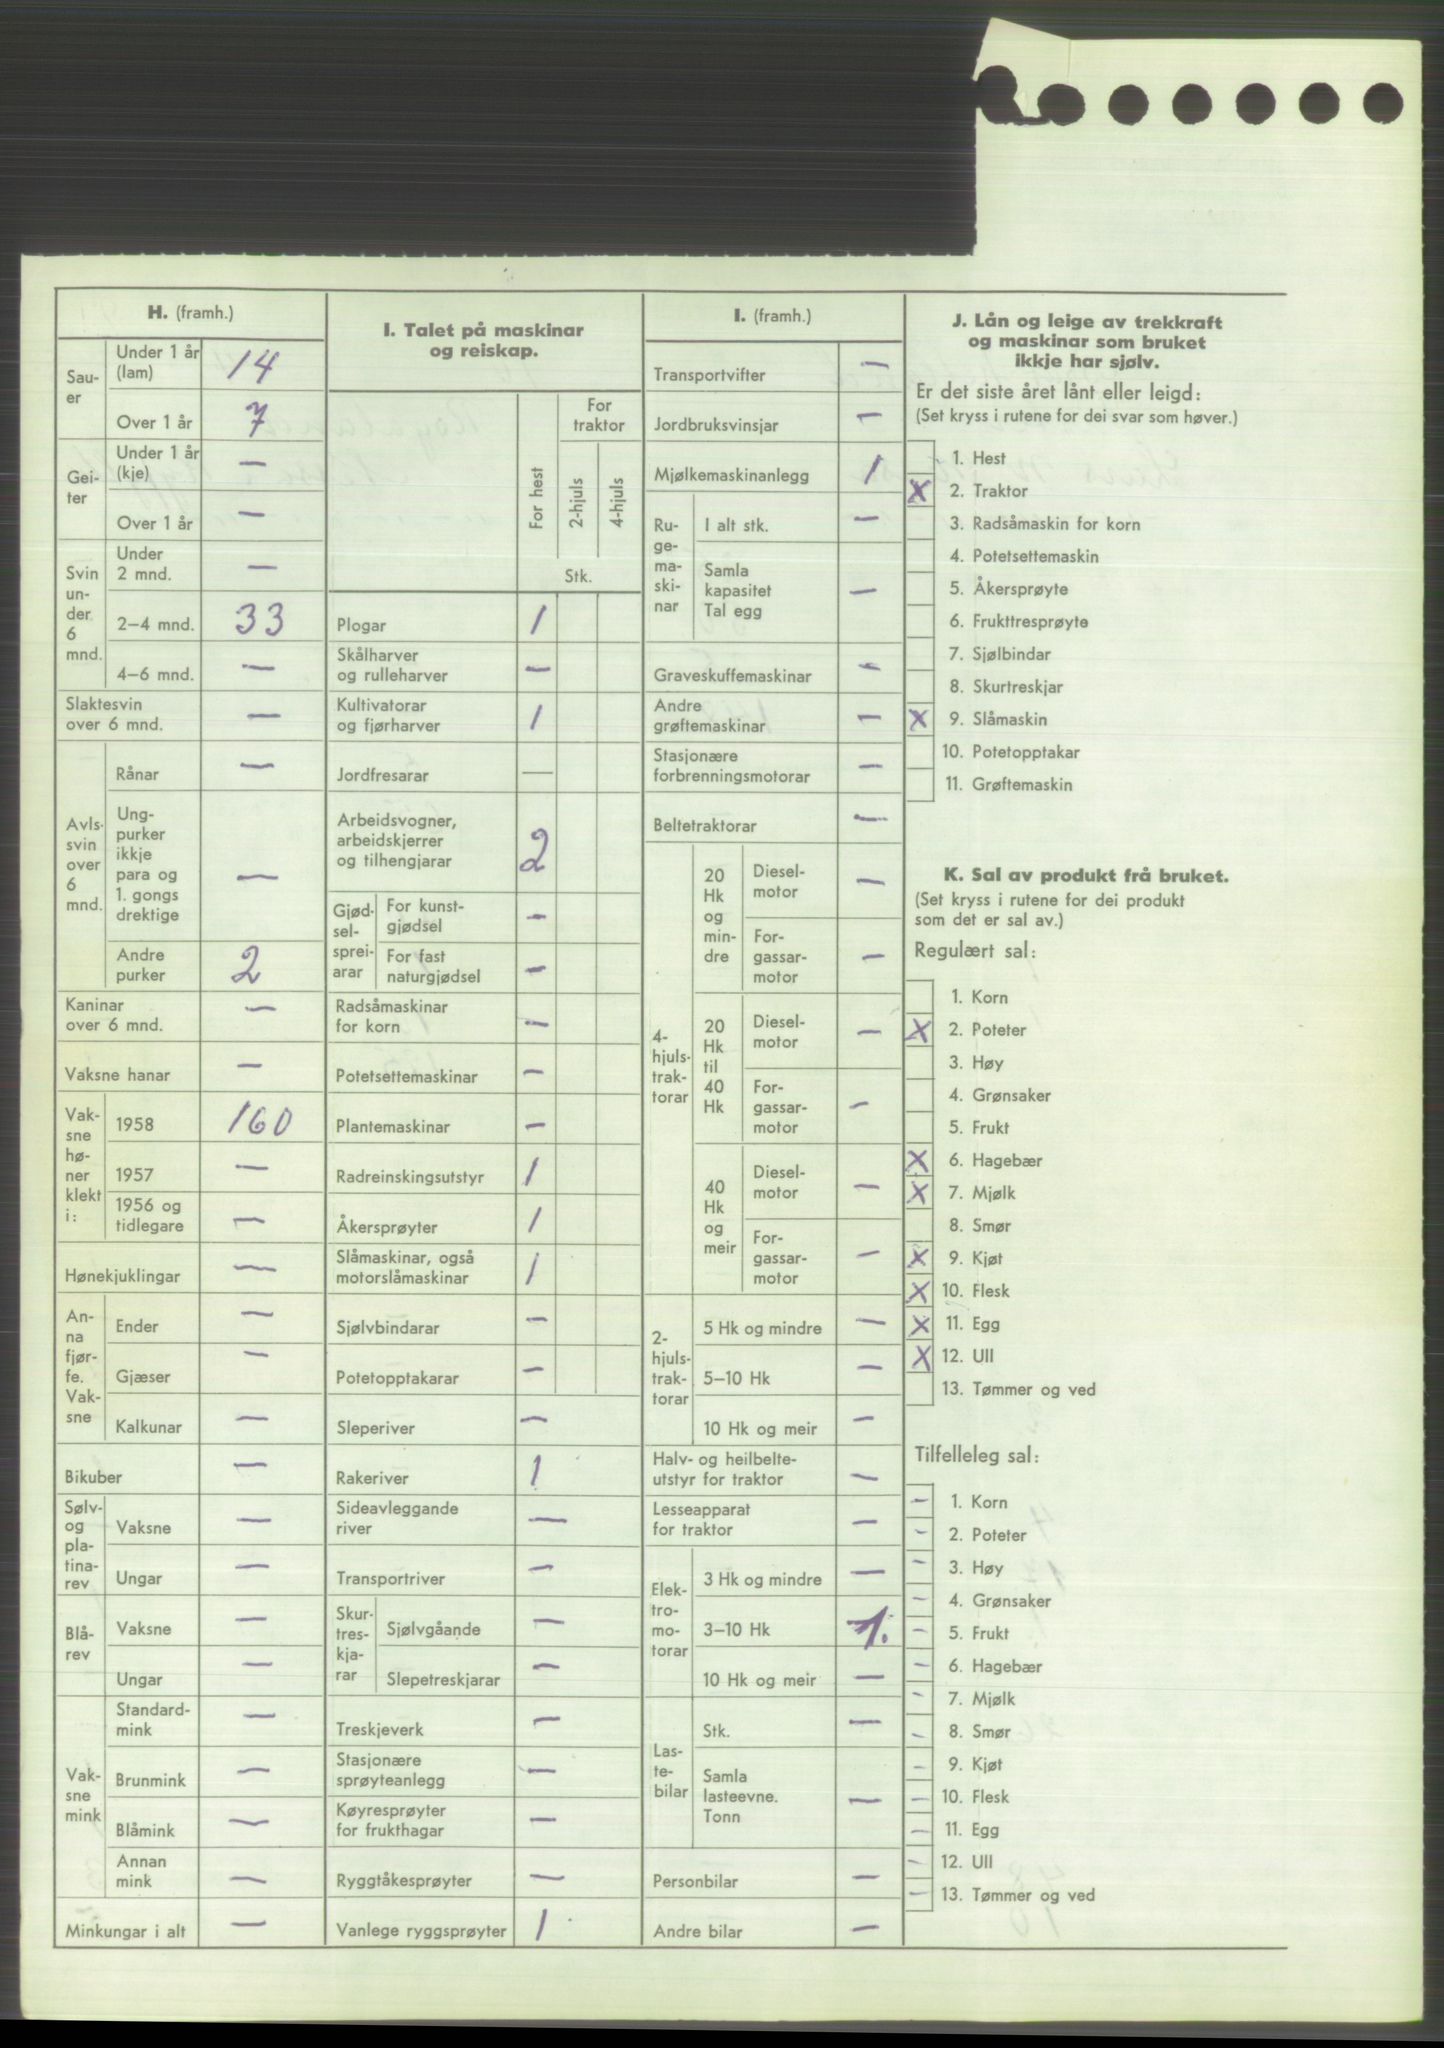 H. (framh.)
Sau-
er
Under 1 år
(lam)
14
Over 1 år
7
Gei-
ter
Under 1 år
(kje)
—
Over 1 år
—
Svin
un-
der
6
mnd.
Under
2 mnd.
—
2–4 mnd.
33
4–6 mnd.
—
Slaktesvin
over 6 mnd.
—
Avls-
svin
over
6
mnd.
Rånar
—
Ung-
purker
ikkje
para og
1. gongs
drektige
—
Andre
purker
2
Kaninar
over 6 mnd.
—
Vaksne hanar
—
Vak-
sne
hø-
ner
klekt
i:
1958
160
1957
—
1956 og
tidlegare
—
Hønekjuklingar
—
An-
na
fjør-
fe.
Vak-
sne
Ender
—
Gjæser
—
Kalkunar
—
Bikuber
—
Sølv-
og
pla-
tina-
rev
Vaksne
—
Ungar
—
Blå-
rev
Vaksne
—
Ungar
—
Vak-
sne
mink
Standard-
mink
—
Brunmink
—
Blåmink
—
Annan
mink
—
Minkungar i alt
—
I. Talet på maskinar
og reiskap.
For hest
For
traktor
2-hjuls
4-hjuls
Stk.
Plogar
1
Skålharver
og rulleharver
—
Kultivatorar
og fjørharver
1
Jordfresarar
—
Arbeidsvogner,
arbeidskjerrer
og tilhengjarar
2
Gjød-
sel-
sprei-
arar
For kunst-
gjødsel
—
For fast
naturgjødsel
—
Radsåmaskinar
for korn
—
Potetsettemaskinar
—
Plantemaskinar
—
Radreinskingsutstyr
1
Åkersprøyter
1
Slåmaskinar, også
motorslåmaskinar
1
Sjølvbindarar
—
Potetopptakarar
—
Sleperiver
—
Rakeriver
1
Sideavleggande
river
—
Transportriver
—
Skur-
tres-
kja-
rar
Sjølvgåande
—
Slepetreskjarar
—
Treskjeverk
—
Stasjonære
sprøyteanlegg
—
Køyresprøyter
for frukthagar
—
Ryggtåkesprøyter
—
Vanlege ryggsprøyter
1
I. (framh.)
Transportvifter
—
Jordbruksvinsjar
—
Mjølkemaskinanlegg
1
Ru-
ge-
ma-
ski-
nar
I alt stk.
—
Samla
kapasitet
Tal egg
—
Graveskuffemaskinar
—
Andre
grøftemaskinar
—
Stasjonære
forbrenningsmotorar
—
Beltetraktorar
—
4-
hjuls-
trak-
torar
20
Hk
og
min-
dre
Diesel-
motor
—
For-
gassar-
motor
—
20
Hk
til
40
Hk
Diesel-
motor
—
For-
gassar-
motor
—
40
Hk
og
meir
Diesel-
motor
—
For-
gassar-
motor
—
2-
hjuls-
trak-
torar
5 Hk og mindre
—
5–10 Hk
—
10 Hk og meir
—
Halv- og heilbelte-
utstyr for traktor
—
Lesseapparat
for traktor
—
Elek-
tro-
mo-
torar
3 Hk og mindre
—
3–10 Hk
1.
10 Hk og meir
—
Las-
te-
bilar
Stk.
—
Samla
lasteevne.
Tonn
—
Personbilar
—
Andre bilar
—
J. Lån og leige av trekkraft
og maskinar som bruket
ikkje har sjølv.
Er det siste året lånt eller leigd:
(Set kryss i rutene for dei svar som høver.)
1. Hest
X 2. Traktor
3. Radsåmaskin for korn
4. Potetsettemaskin
5. Åkersprøyte
6. Frukttresprøyte
7. Sjølbindar
8. Skurtreskjar
X 9. Slåmaskin
10. Potetopptakar
11. Grøftemaskin
K. Sal av produkt frå bruket.
(Set kryss i rutene for dei produkt
som det er sal av.)
Regulært sal:
1. Korn
X 2. Poteter
3. Høy
4. Grønsaker
5. Frukt
X 6. Hagebær
X 7. Mjølk
8. Smør
X 9. Kjøt
X 10. Flesk
X 11. Egg
X 12. Ull
13. Tømmer og ved
Tilfelleleg sal:
— 1. Korn
— 2. Poteter
— 3. Høy
— 4. Grønsaker
— 5. Frukt
— 6. Hagebær
— 7. Mjølk
— 8. Smør
— 9. Kjøt
— 10. Flesk
— 11. Egg
— 12. Ull
— 13. Tømmer og ved